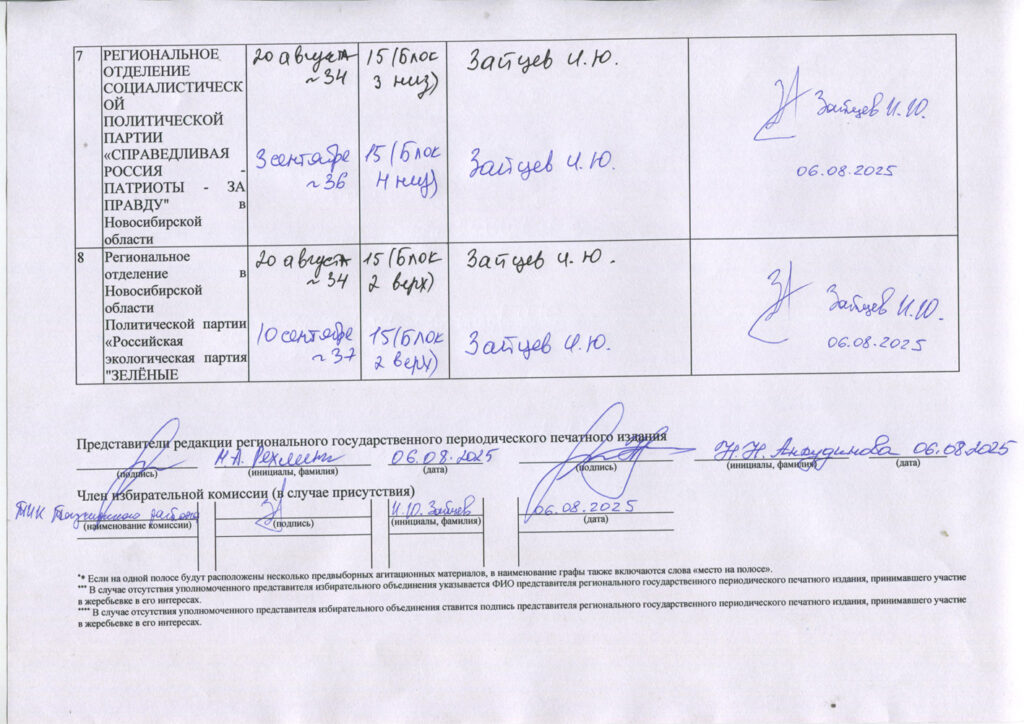 7
РЕГИОНАЛЬНОЕ
ОТДЕЛЕНИЕ
СОЦИАЛИСТИЧЕСК
ОЙ
ПОЛИТИЧЕСКОЙ
ПАРТИИ
«СПРАВЕДЛИВАЯ
РОССИЯ -
ПАТРИОТЫ - ЗА
ПРАВДУ" в
Новосибирской
области
20 августа
~34
3 сентября
~36
15 (Блок
3 низ)
15 (Блок
4 низ)
Зайцев И.Ю.
Зайцев И.Ю.
Зайцев И.Ю.
06.08.2025
8
Региональное
отделение в
Новосибирской
области
Политической партии
«Российская
экологическая партия
"ЗЕЛЁНЫЕ
20 августа
~34
10 сентября
~37
15 (Блок
2 верх)
15 (Блок
2 верх)
Зайцев И.Ю.
Зайцев И.Ю.
Зайцев И.Ю.
06.08.2025
Представители редакции регионального государственного периодического печатного издания
Н.А. 06.08.2025 Н.Н. Анкудинова 06.08.2025
(подпись) (инициалы, фамилия) (дата) (подпись) (инициалы, фамилия) (дата)
Член избирательной комиссии (в случае присутствия)
ТИК района И.Ю. Зайцев 06.08.2025
(наименование комиссии) (подпись) (инициалы, фамилия) (дата)
"* Если на одной полосе будут расположены несколько предвыборных агитационных материалов, в наименование графы также включаются слова «место на полосе».
*** В случае отсутствия уполномоченного представителя избирательного объединения указывается ФИО представителя регионального государственного периодического печатного издания, принимавшего участие
в жеребьевке в его интересах.
**** В случае отсутствия уполномоченного представителя избирательного объединения ставится подпись представителя регионального государственного периодического печатного издания, принимавшего участие
в жеребьевке в его интересах.